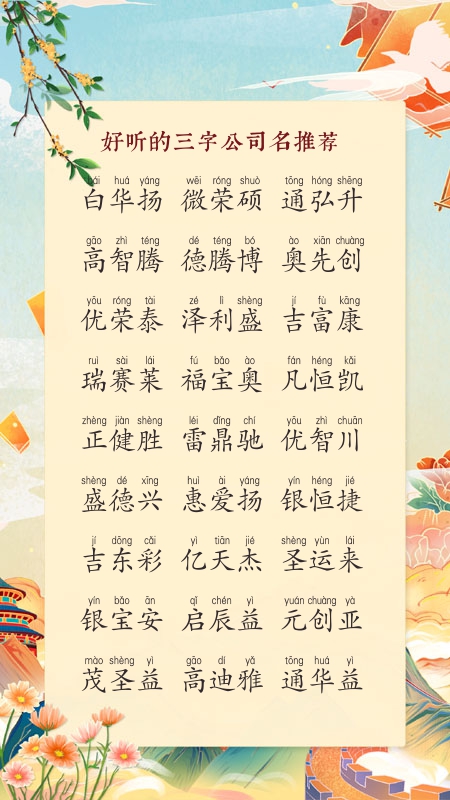 好听的三字公司名推荐
bái huá yáng wēi róng shuò tōng hóng shēng
白华扬 微荣硕 通弘升
gāo zhì téng dé téng bó ào xiān chuàng
高智腾 德腾博 奥先创
yōu róng tài zé lì shèng jí fù kāng
优荣泰 泽利盛 吉富康
ruì sài lái fú bǎo ào fán héng kǎi
瑞赛莱 福宝奥 凡恒凯
zhèng jiàn shèng léi dǐng chí yōu zhì chuān
正健胜 雷鼎驰 优智川
shèng dé xīng huì ài yáng yín héng jié
盛德兴 惠爱扬 银恒捷
jí dōng cǎi yì tiān jié shèng yùn lái
吉东彩 亿天杰 圣运来
yín bǎo ān qǐ chén yì yuán chuàng yà
银宝安 启辰益 元创亚
mào shèng yì gāo dí yǎ tōng huá yì
茂圣益 高迪雅 通华益